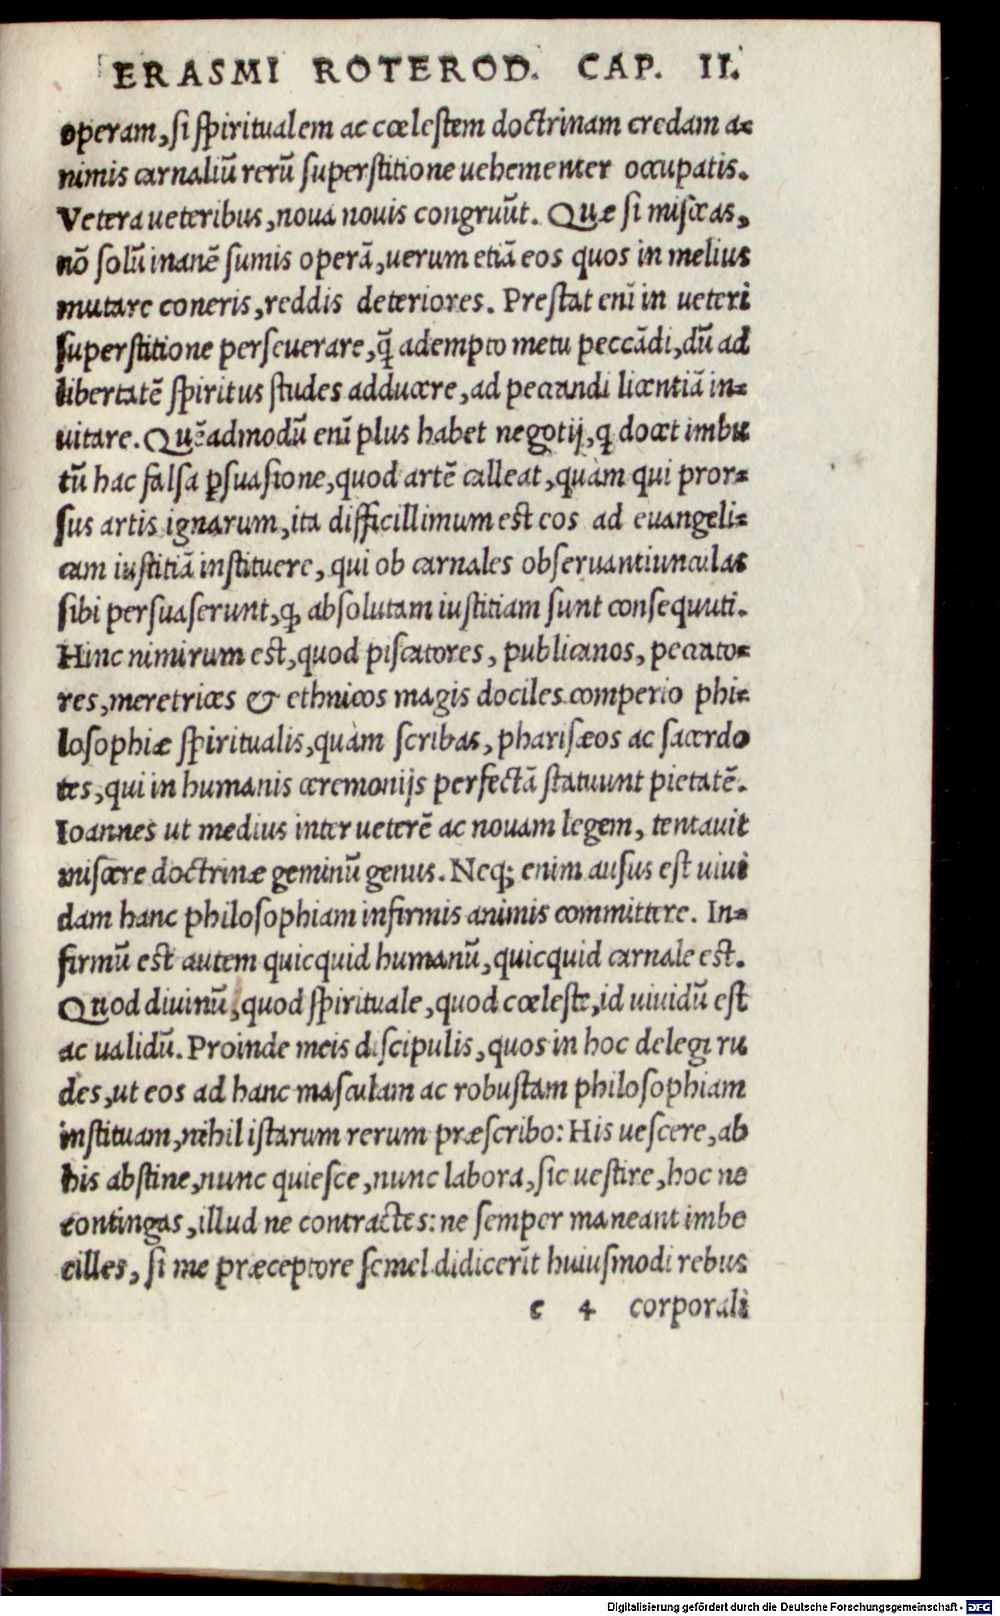 ERASMI ROTEROD. CAP. II.
operam, si spiritualem ac cœlestem doctrinam credam a-
nimis carnaliũ rerũ superstitione uehementer occupatis.
Vetera ueteribus, noua nouis congruũt. Quæ si misceas,
nõ solũ inanẽ sumis operã, uerum etiã eos quos in melius
mutare coneris, reddis deteriores. Prestat enĩ in ueteri
superstitione perseuerare, q̃ adempto metu peccãdi, dũ ad
libertatẽ spiritus studes adducere, ad peccandi licentiã in-
uitare. Quẽadmodũ enĩ plus habet negotij, ꝗ docet imbu
tũ hac falsa ꝑsuasione, quod artẽ calleat, quàm qui pror-
sus artis ignarum, ita difficillimum est eos ad euangeli-
cam iustitiã instituere, qui ob carnales obseruantiunculas
sibi persuaserunt, ꝙ absolutam iustitiam sunt consequuti.
Hinc nimirum est, quod piscatores, publicanos, peccato-
res, meretrices & ethnicos magis dociles comperio phi-
losophiæ spiritualis, quàm scribas, pharisæos ac sacerdo
tes, qui in humanis ceremonijs perfectã statuunt pietatẽ.
Ioannes ut medius inter ueterẽ ac nouam legem, tentauit
miscere doctrinæ geminũ genus. Neq; enim ausus est uiui
dam hanc philosophiam infirmis animis committere. In-
firmũ est autem quicquid humanũ, quicquid carnale est.
Quod diuinũ, quod spirituale, quod cœleste, id uiuidũ est
ac ualidũ. Proinde meis discipulis, quos in hoc delegi ru
des, ut eos ad hanc masculam ac robustam philosophiam
instituam, nihil istarum rerum præscribo: His uescere, ab
his abstine, nunc quiesce, nunc labora, sic uestire, hoc ne
contingas, illud ne contractes: ne semper maneant imbe
cilles, si me præceptore semel didicerĩt huiusmodi rebus
e 4 corporali
Digitalisierung gefördert durch die Deutsche Forschungsgemeinschaft - DFG